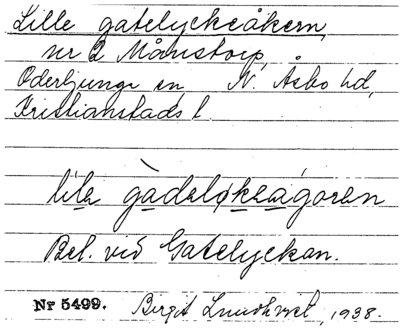 Lille gatelyckeåkern,
nr 2 Månstorp,
Oderljunga sn, N. Åsbo hd,
Kristianstads l.
lilə gàdeløkəågoren
Bel. vid Gatelyckan.
Nr 5499. Birgit Lundkvist 1938.